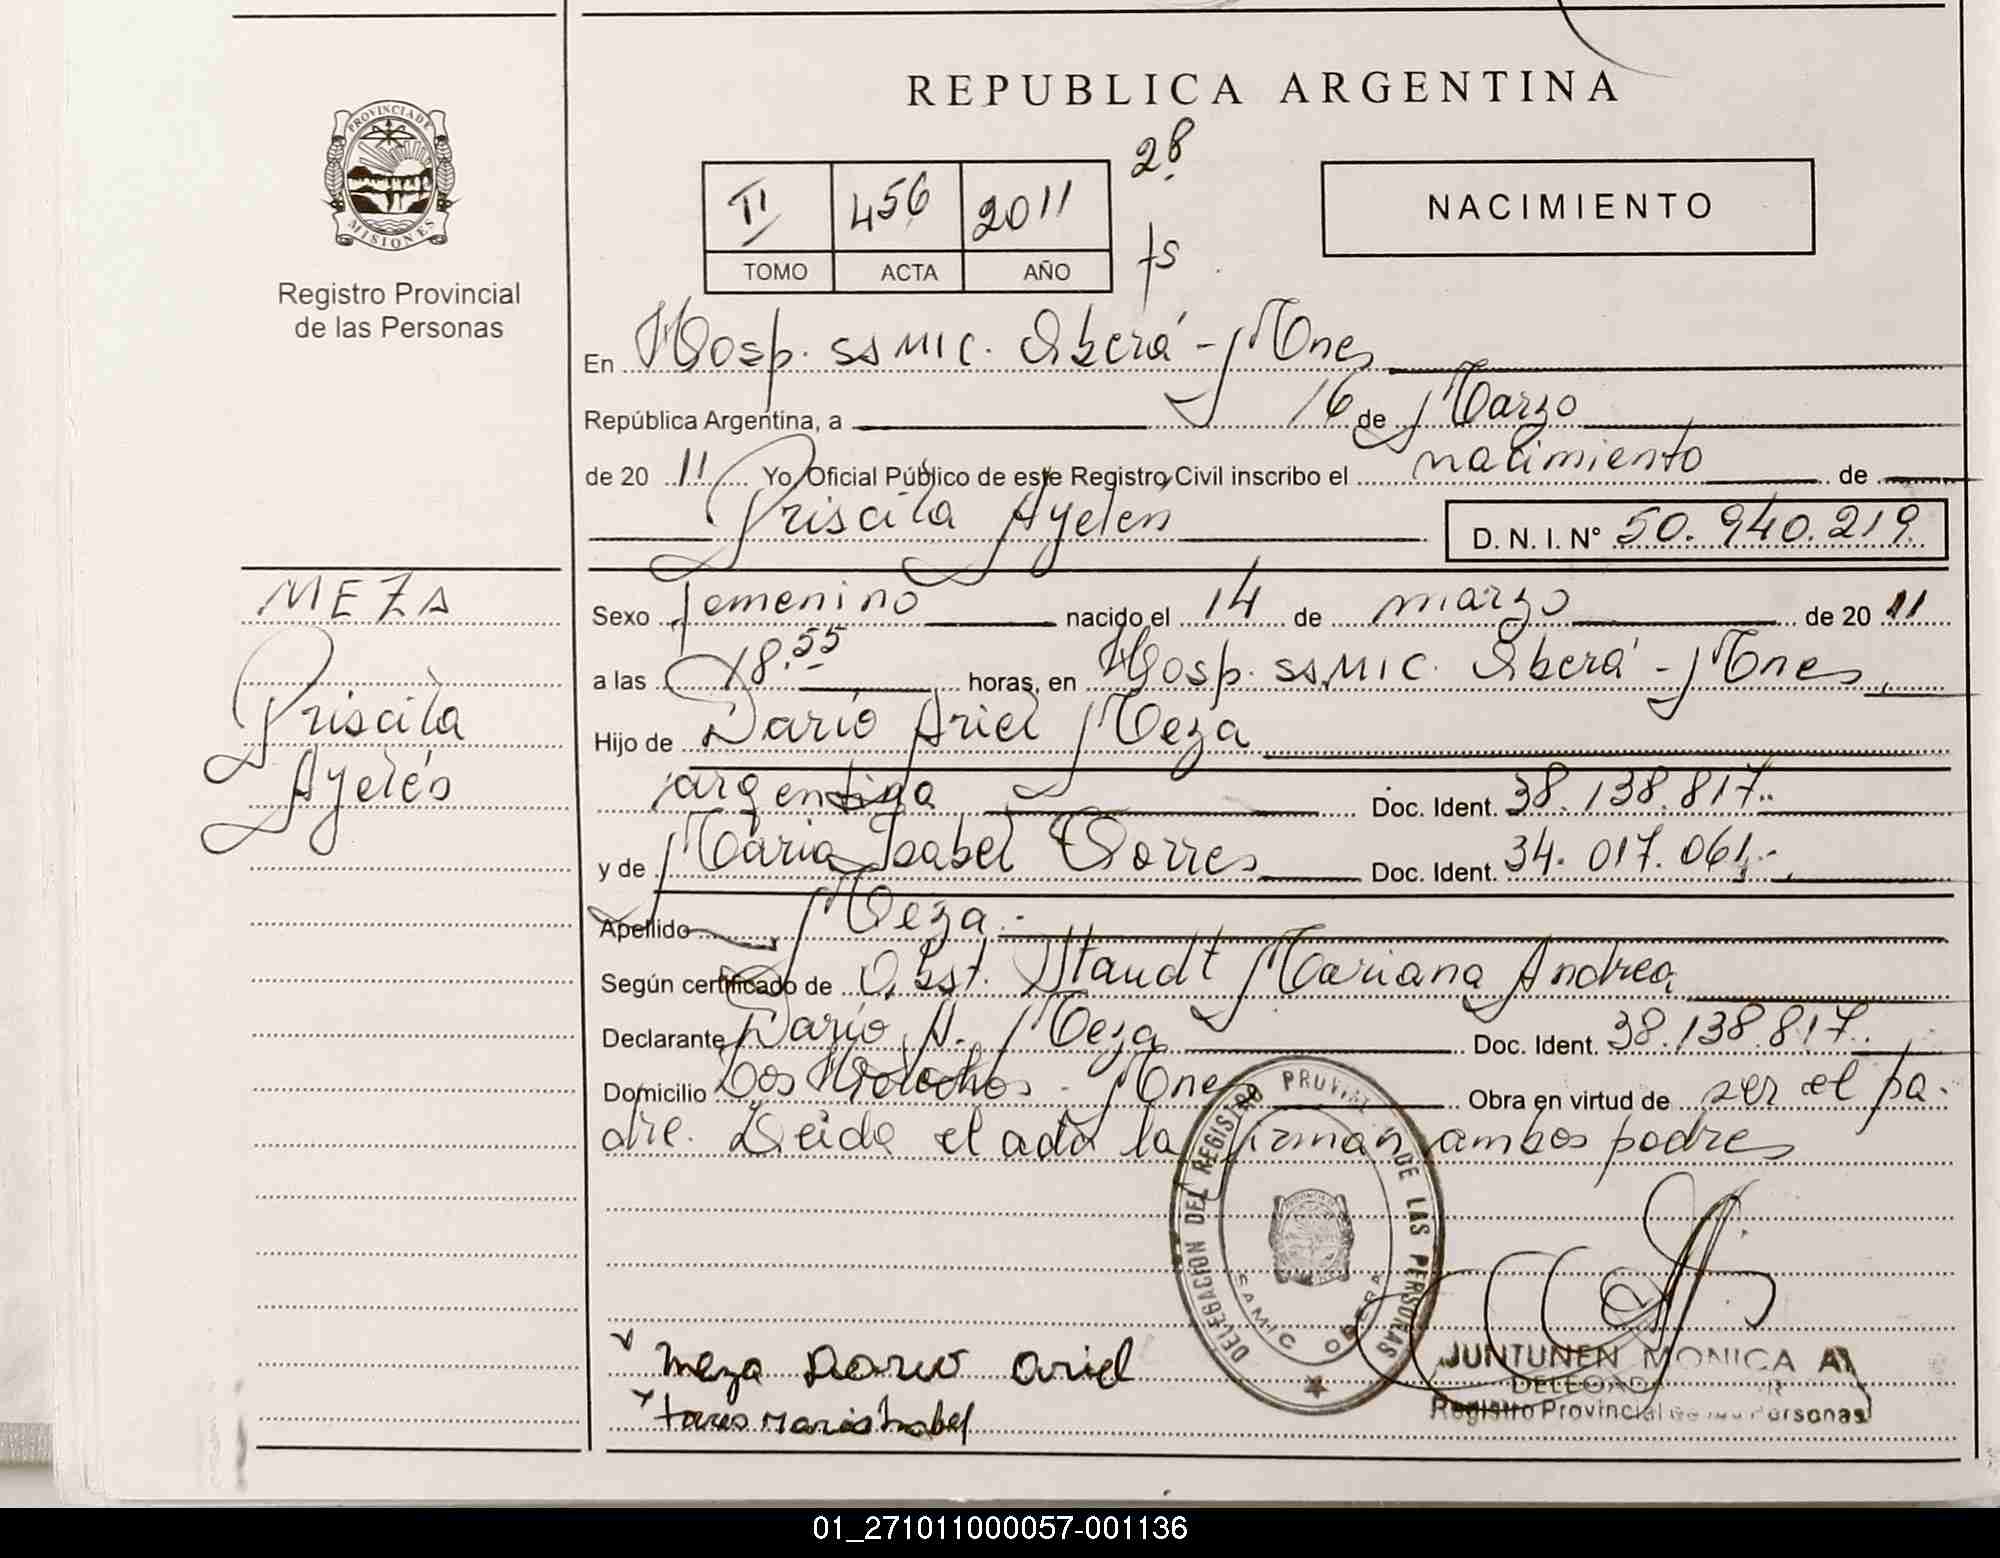 REPUBLICA ARGENTINA
PROVINCIA DE
MISIONES
Registro Provincial
de las Personas
28
II 456 2011
TOMO ACTA AÑO
fs
NACIMIENTO
En Hosp. SSMIC. Oberá - Mnes
República Argentina, a 16 de Marzo
de 20 11 Yo Oficial Público de este Registro Civil inscribo el nacimiento de
Priscila Ayelén
D. N. I. Nº 50.940.219
MEZA
Priscila
Ayelén
Sexo femenino nacido el 14 de marzo de 20 11
a las 18.55 horas, en Hosp. SSMIC. Oberá - Mnes
Hijo de Darío Ariel Meza
argentina Doc. Ident. 38.138.817..
y de Maria Isabel Torres Doc. Ident. 34.017.061.-
Apellido Meza.
Según certificado de Obst. Staudt Mariana Andrea
Declarante Darío A. Meza Doc. Ident. 38.138.817..
Domicilio Los - Mnes Obra en virtud de ser el pa-
dre. Leida el acta la firman ambos padres
DELEGACION DEL REGISTRO PROVINCIAL DE LAS PERSONAS
SAMIC OBERA
Meza Dario Ariel
Torres Maria Isabel
JUNTUNEN MONICA A
DELEGADA
Registro Provincial de las Personas
01_271011000057-001136